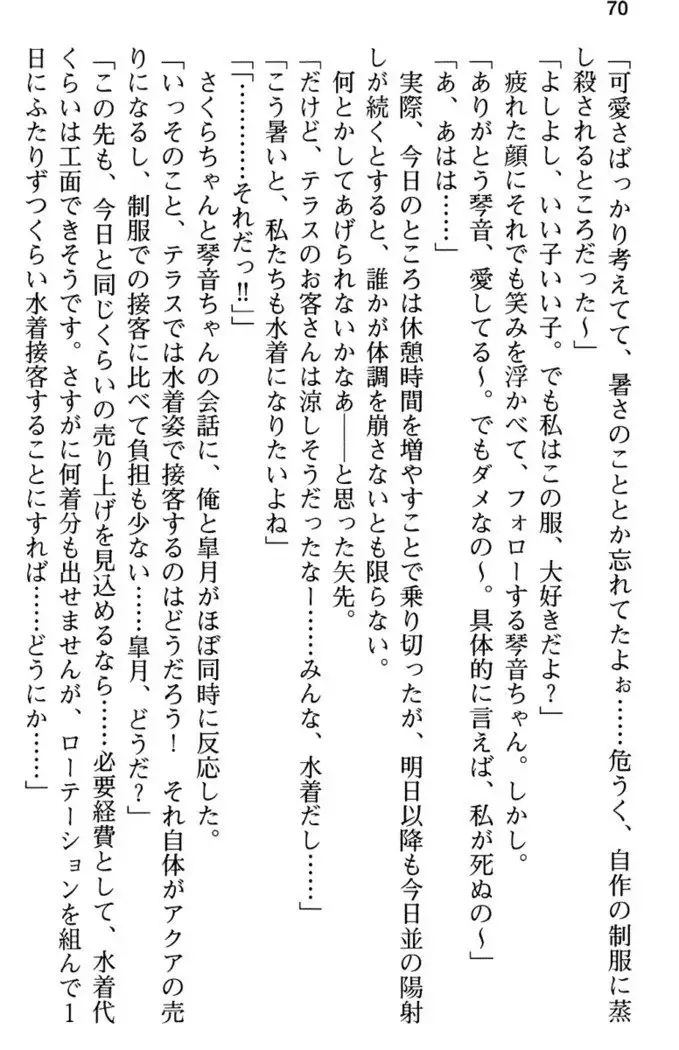 70
「可愛さばっかり考えてて、暑さのこととか忘れてたよぉ……危うく、自作の制服に蒸
し殺されるところだった～」
「よしよし、いい子いい子。でも私はこの服、大好きだよ？」
疲れた顔にそれでも笑みを浮かべて、フォローする琴音ちゃん。しかし。
「ありがとう琴音、愛してる～。でもダメなの～。具体的に言えば、私が死ぬの～」
「あ、あはは……」
実際、今日のところは休憩時間を増やすことで乗り切ったが、明日以降も今日並の陽射
しが続くとすると、誰かが体調を崩さないとも限らない。
何とかしてあげられないかなあ――と思った矢先。
「だけど、テラスのお客さんは涼しそうだったなー……みんな、水着だし……」
「こう暑いと、私たちも水着になりたいよね」
「「…………それだっ!!」」
さくらちゃんと琴音ちゃんの会話に、俺と皐月がほぼ同時に反応した。
「いっそのこと、テラスでは水着姿で接客するのはどうだろう！　それ自体がアクアの売
りになるし、制服での接客に比べて負担も少ない……皐月、どうだ？」
「この先も、今日と同じくらいの売り上げを見込めるなら……必要経費として、水着代
くらいは工面できそうです。さすがに何着分も出せませんが、ローテーションを組んで１
日にふたりずつくらい水着接客することにすれば……どうにか……」